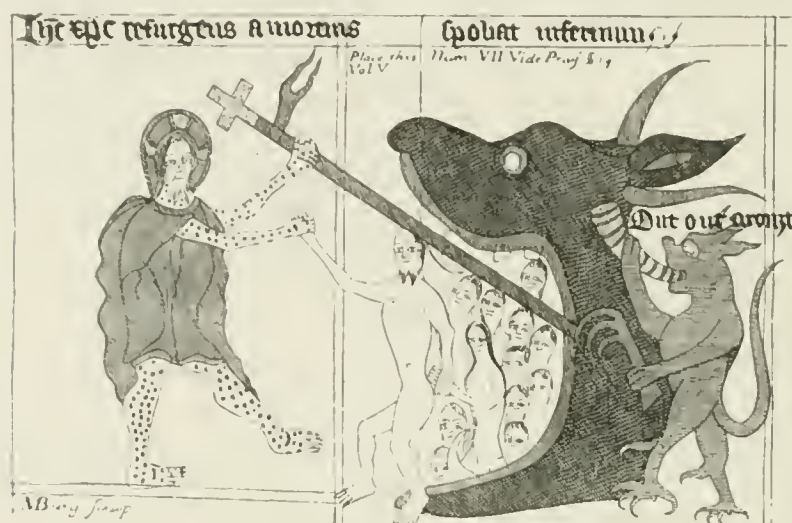 Ihc xpc resurgens a mortuis spoliat infernum
Place this Num VII Vide Praf §
Vol V
Out out aronzt